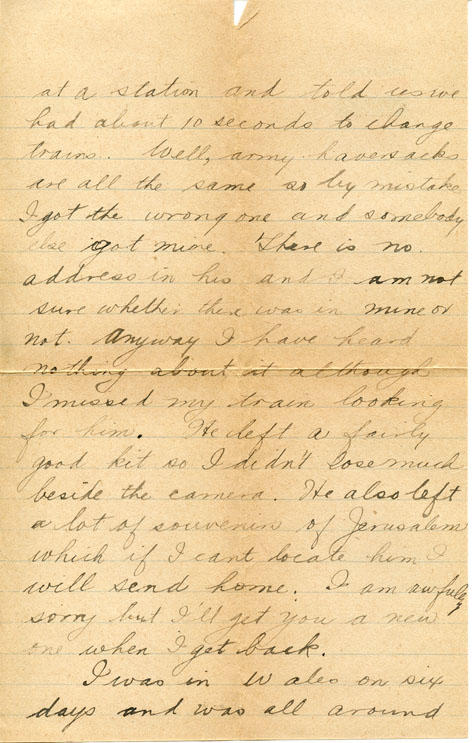 at a station and told us we
had about 10 seconds to change
trains. Well, army haversacks
are all the same so by mistake
I got the wrong one and somebody
else got mine. There is no
address in his and I am not
sure whether there was in mine or
not. Anyway I have heard
nothing about it although
I missed my train looking
for him. He left a fairly
good kit so I didn't lose much
beside the camera. He also left
a lot of souvenirs of Jerusalem
which if I cant locate him I
will send home. I am awfully
sorry but I'll get you a new
one when I get back.
I was in Wales on six
days and was all around